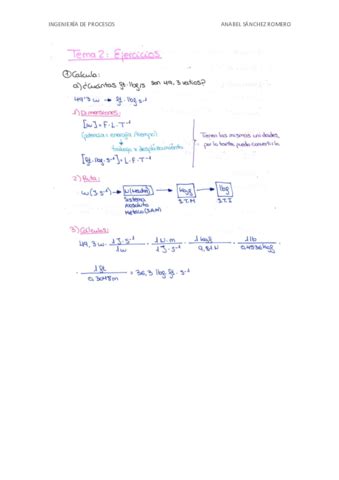 INGENIERÍA DE PROCESOS ANABEL SÁNCHEZ ROMERO
Tema 2: Ejercicios
① Calcula:
a) ¿Cuántos ft·lbf/s son 49,3 vatios?
49,3 w → ft·lbf·s⁻¹
1) Dimensiones:
[w] = F·L·T⁻¹
(potencia = energía/tiempo)
trabajo = desplazamiento
[ft·lbf·s⁻¹] = L·F·T⁻¹
Tienen las mismas unidades, por lo tanto, puedo convertirlo.
2) Ruta:
w (J·s⁻¹) → N (Newton) → kgf → lbf
Sistema Absoluto Métrico (S.A.M) S.T.M S.T.I
3) Cálculos:
49,3 w · 1 J·s⁻¹ / 1 w · 1 N·m / 1 J·s⁻¹ · 1 kgf / 9,81 N · 1 lb / 0,4536 kgf
· 1 ft / 0,3048 m = 36,3 lbf ft·s⁻¹